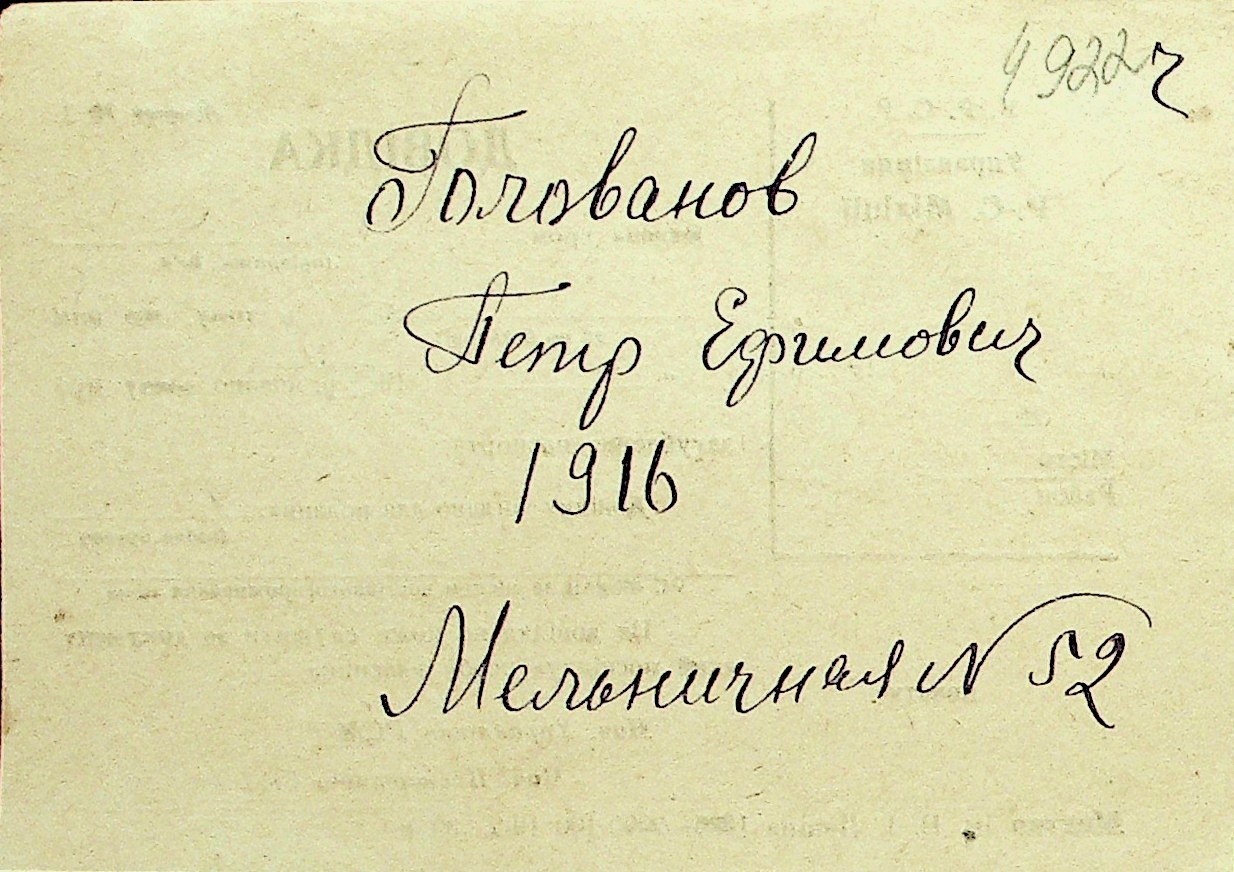 4922 ч
Голованов
Петр Ефимович
1916
Мельничная N 52